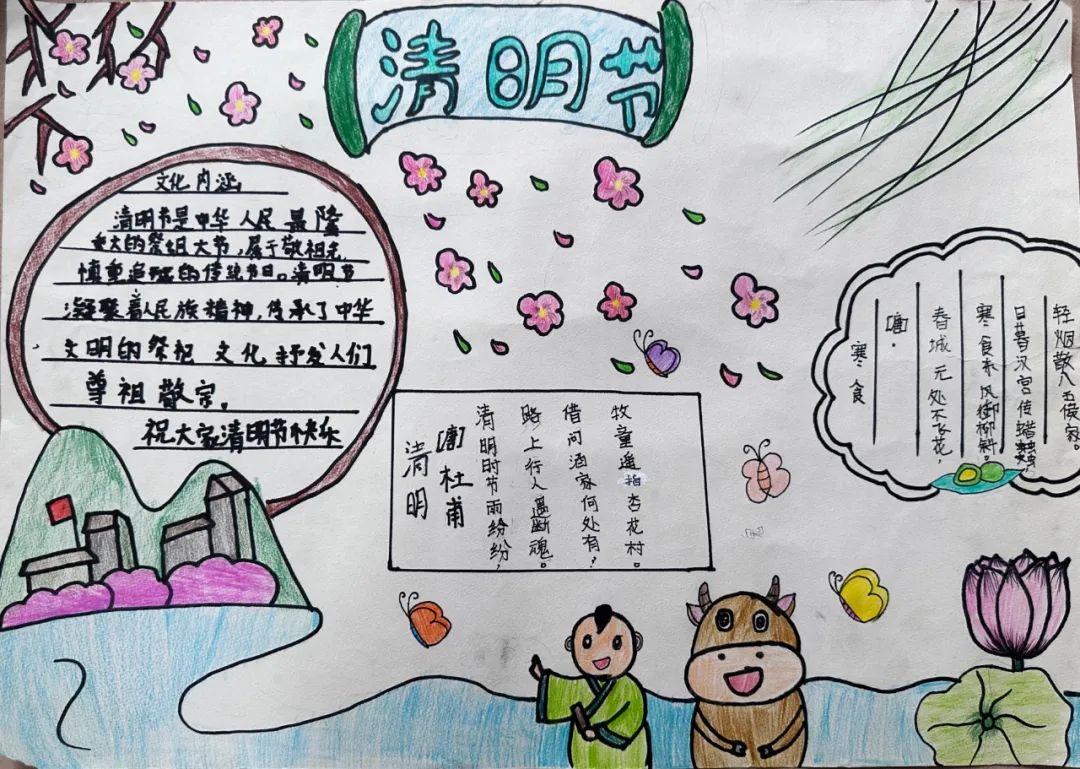 清明节
文化内涵:
清明节是中华人民最隆
重大的祭祖大节,属于敬祖先
慎重追的传统节日。清明节
凝聚着人民族精神,传承了中华
文明的祭祀 文化 抒发人们
尊祖敬宗。
祝大家清明节快乐
清明
[唐]杜甫
清明时节雨纷纷,
路上行人断魂。
借问酒家何处有,
牧童遥指杏花村。
寒食
[唐]·
春城元处不飞花,
寒食东风御柳斜。
日暮汉宫传蜡,
轻烟散八五侯家。